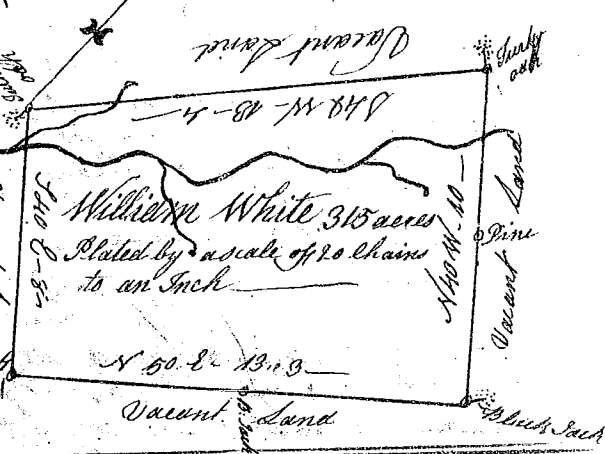 Vacant Land
Turky
oak
S 49 W - 13 - 4
William White 315 acres
Plated by a scale of 20 Chains
to an Inch
N 40 W - 10
Pine
Vacant Land
N 50 E - 13 . 3
Vacant Land
B. Jack
Black Jack